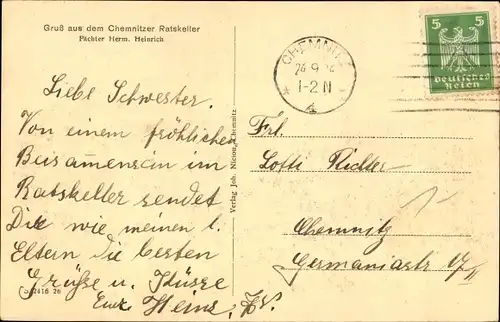 Gruß aus dem Chemnitzer Ratskeller
Pächter Herm. Heinrich
CHEMNITZ
26 9
1-2 N
5 5
Deutsches
Reich
Liebe Schwester.
Von einem fröhlichen
Beisammensein im
Ratskeller sendet
Dir wie meinen l.
Eltern die besten
Grüße u. Küsse
Euer Heinz.
Verlag Joh. Nicou, Chemnitz
Frl.
Lotti Richter
Chemnitz
Germaniastr
2416 26